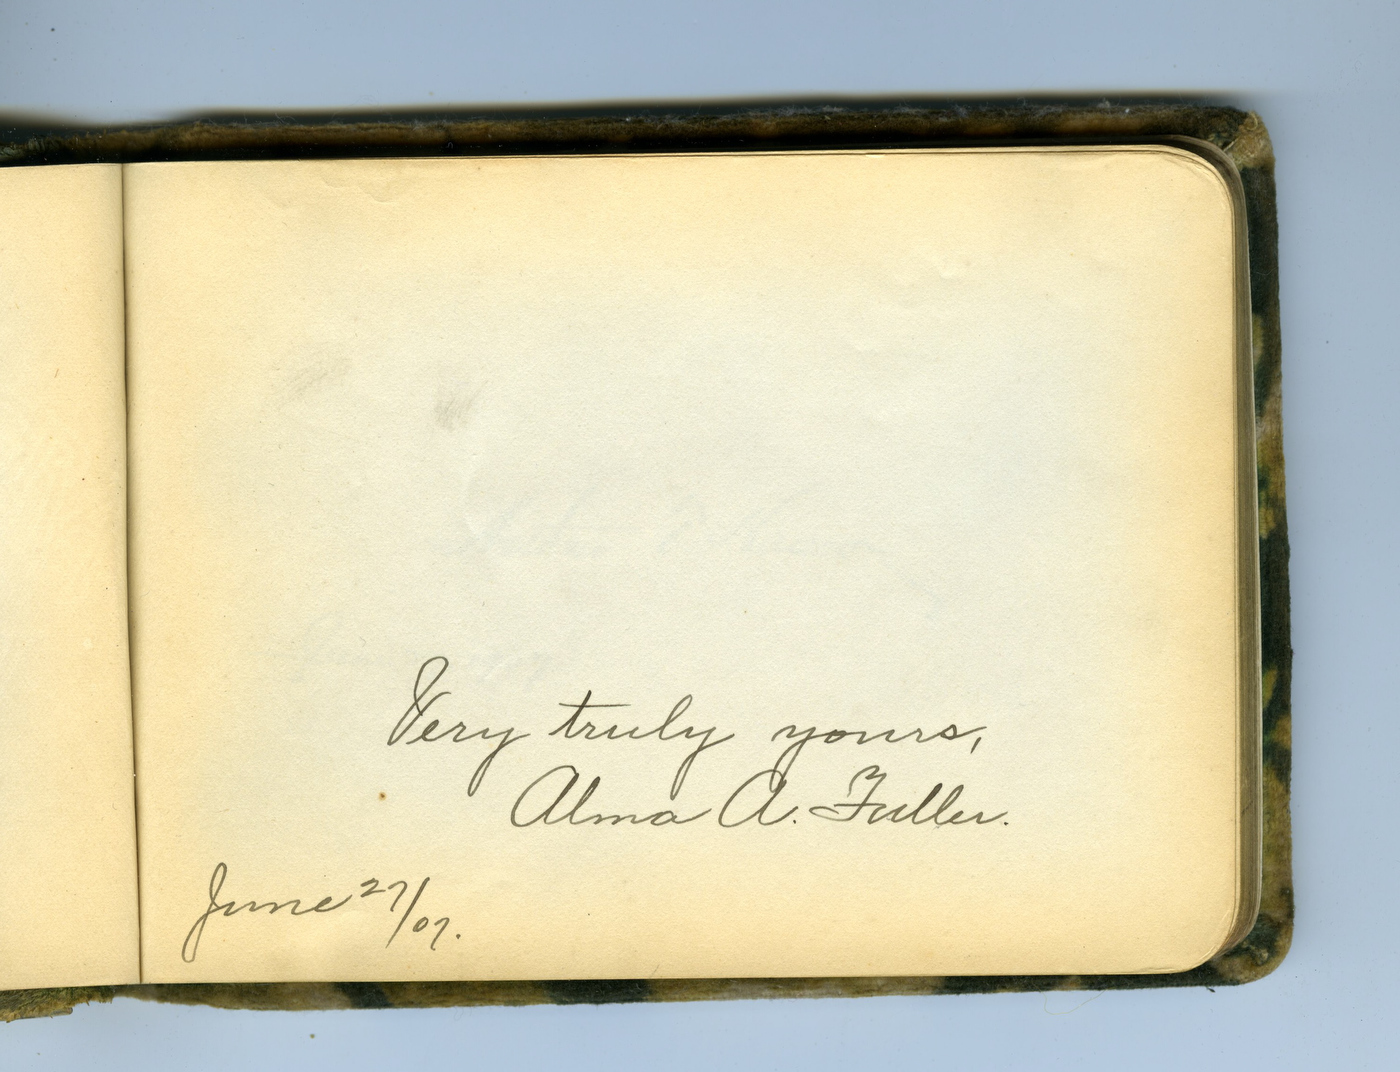 Very truly yours,
Alma A. Fuller.
June 27/07.